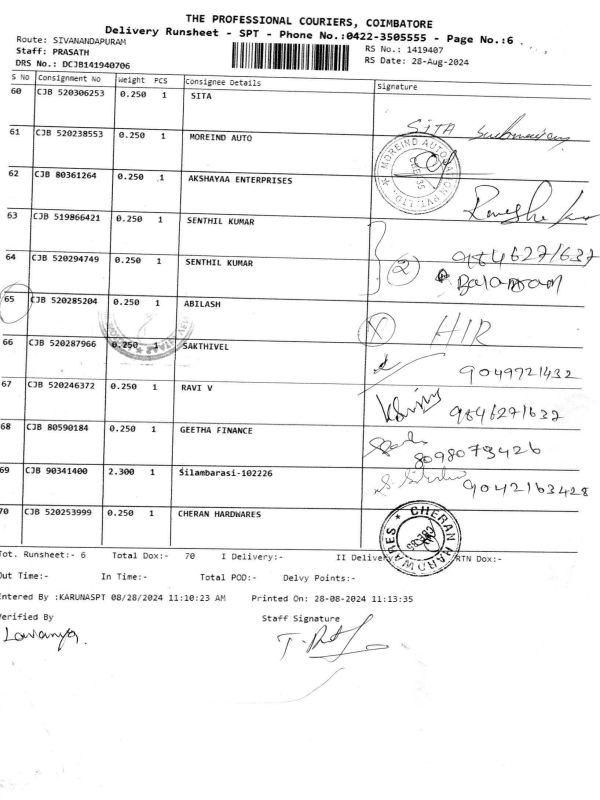 THE PROFESSIONAL COURIERS, COIMBATORE
Delivery Runsheet - SPT - Phone No.:0422-3505555 - Page No.:6
Route: SIVANANDAPURAM
RS No.: 1419407
Staff: PRASATH
RS Date: 28-Aug-2024
DRS No.: DCJB141940706
S No Consignment No Weight PCS Consignee Details Signature
60 CJB 520306253 0.250 1 SITA SITA
61 CJB 520238553 0.250 1 MOREIND AUTO
62 CJB 80361264 0.250 1 AKSHAYAA ENTERPRISES
63 CJB 519866421 0.250 1 SENTHIL KUMAR
64 CJB 520294749 0.250 1 SENTHIL KUMAR 2 9846271637
65 CJB 520285204 0.250 1 ABILASH X
66 CJB 520287966 0.250 1 SAKTHIVEL 9049721432
67 CJB 520246372 0.250 1 RAVI V
68 CJB 80590184 0.250 1 GEETHA FINANCE 8098073426
69 CJB 90341400 2.300 1 Silambarasi-102226 9042163428
70 CJB 520253999 0.250 1 CHERAN HARDWARES CHERAN HARDWARES
Tot. Runsheet:- 6 Total Dox:- 70 I Delivery:- II Delivery RTN Dox:-
Out Time:- In Time:- Total POD:- Delvy Points:-
Entered By :KARUNASPT 08/28/2024 11:10:23 AM Printed On: 28-08-2024 11:13:35
Verified By Staff Signature
Lavanya.